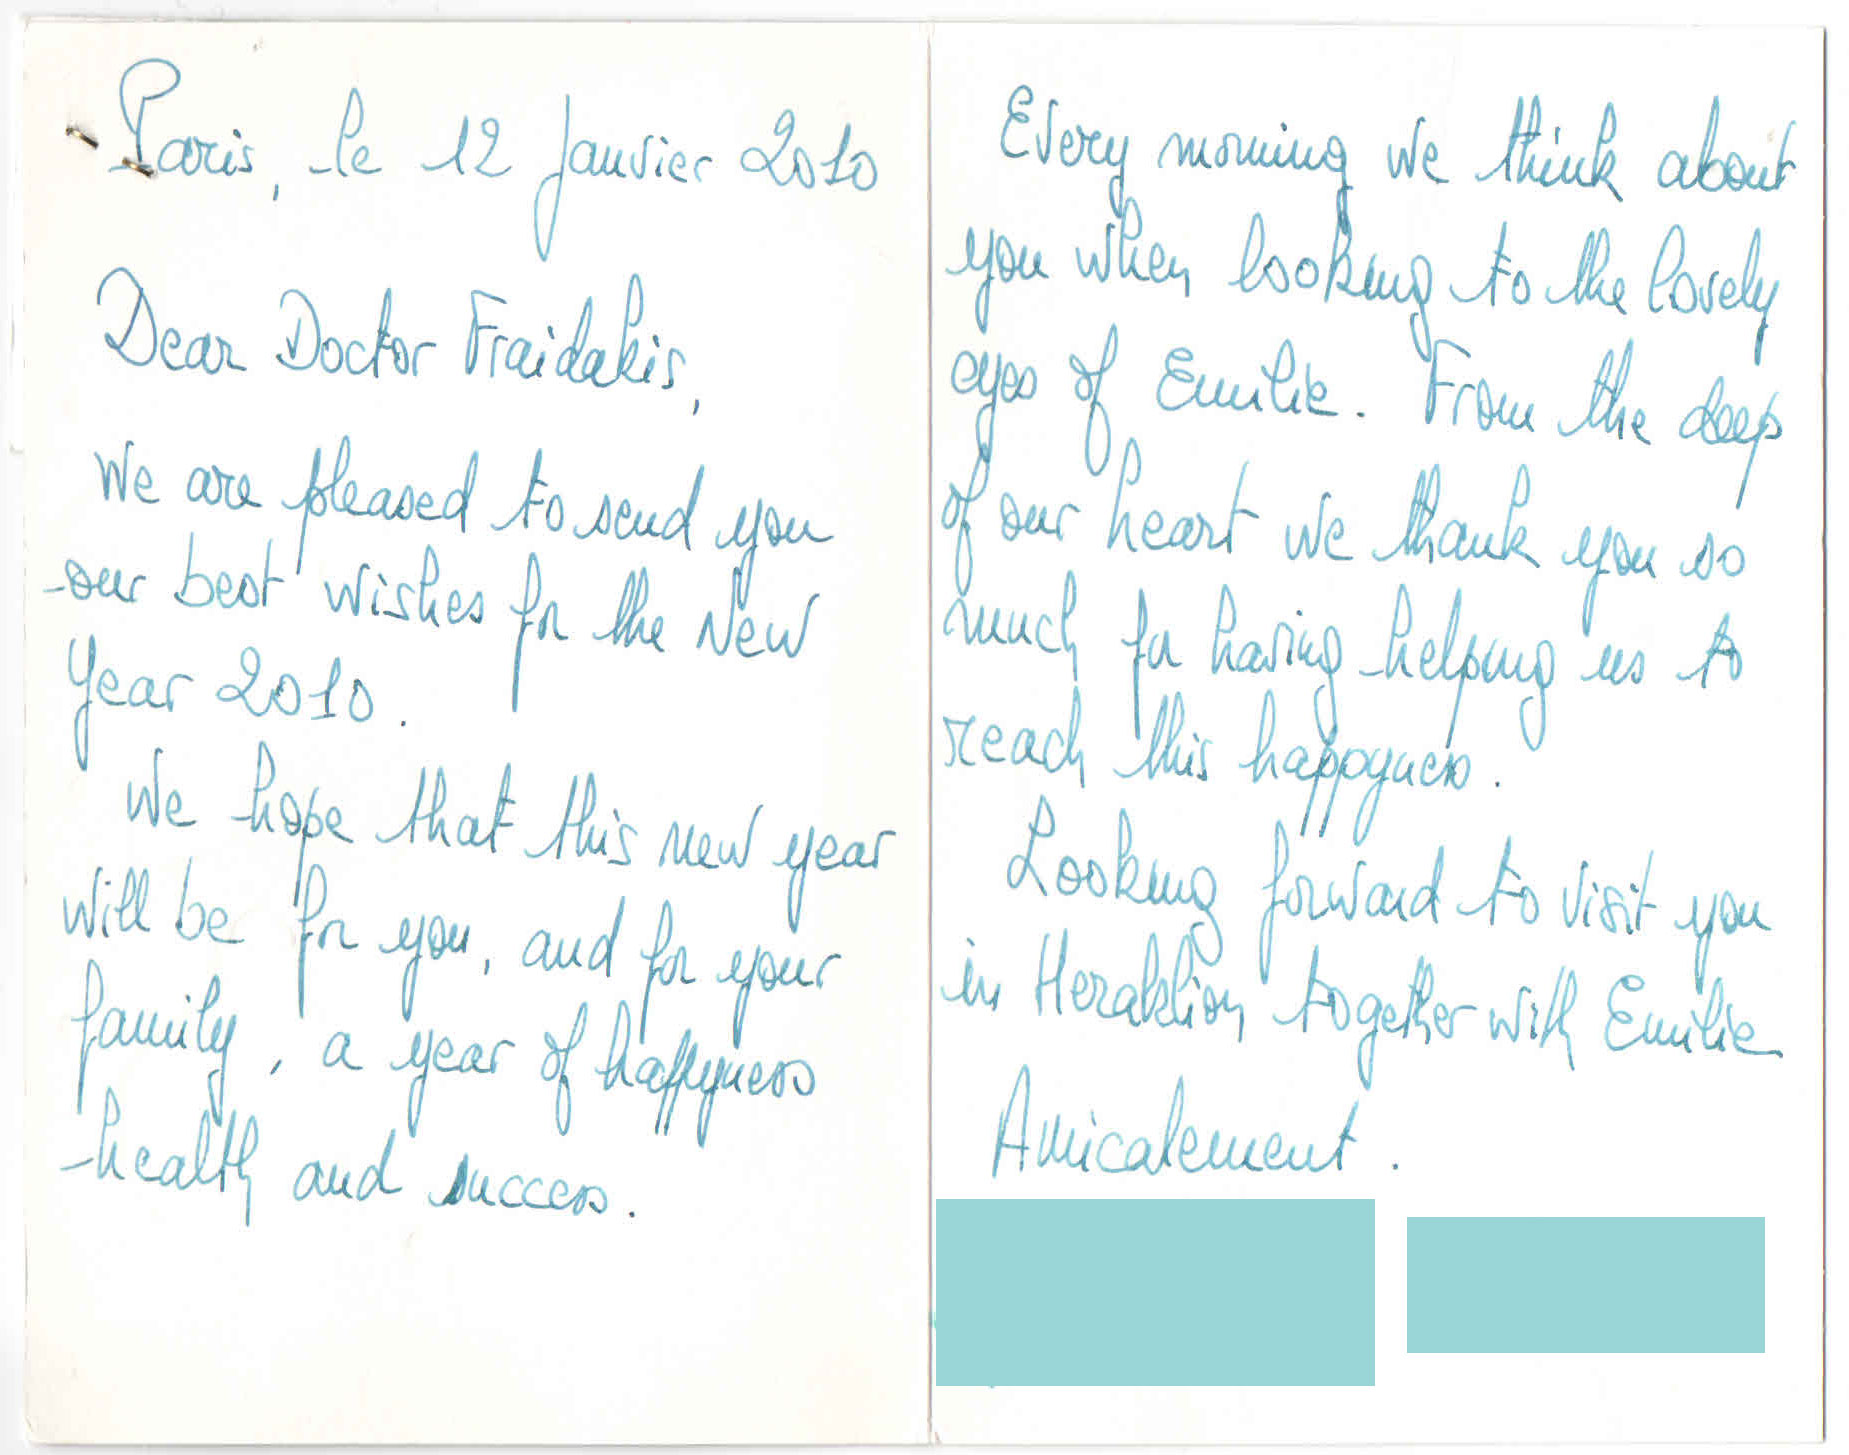 Paris, le 12 Janvier 2010
Dear Doctor Fraidakis,
We are pleased to send you
our best wishes for the New
Year 2010.
We hope that this new year
will be for you, and for your
family, a year of happyness
health and success.
Every morning we think about
you when looking to the lovely
eyes of Emilie. From the deep
of our heart we thank you so
much for having helping us to
reach this happyness.
Looking forward to visit you
in Heraklion together with Emilie
Amicalement.